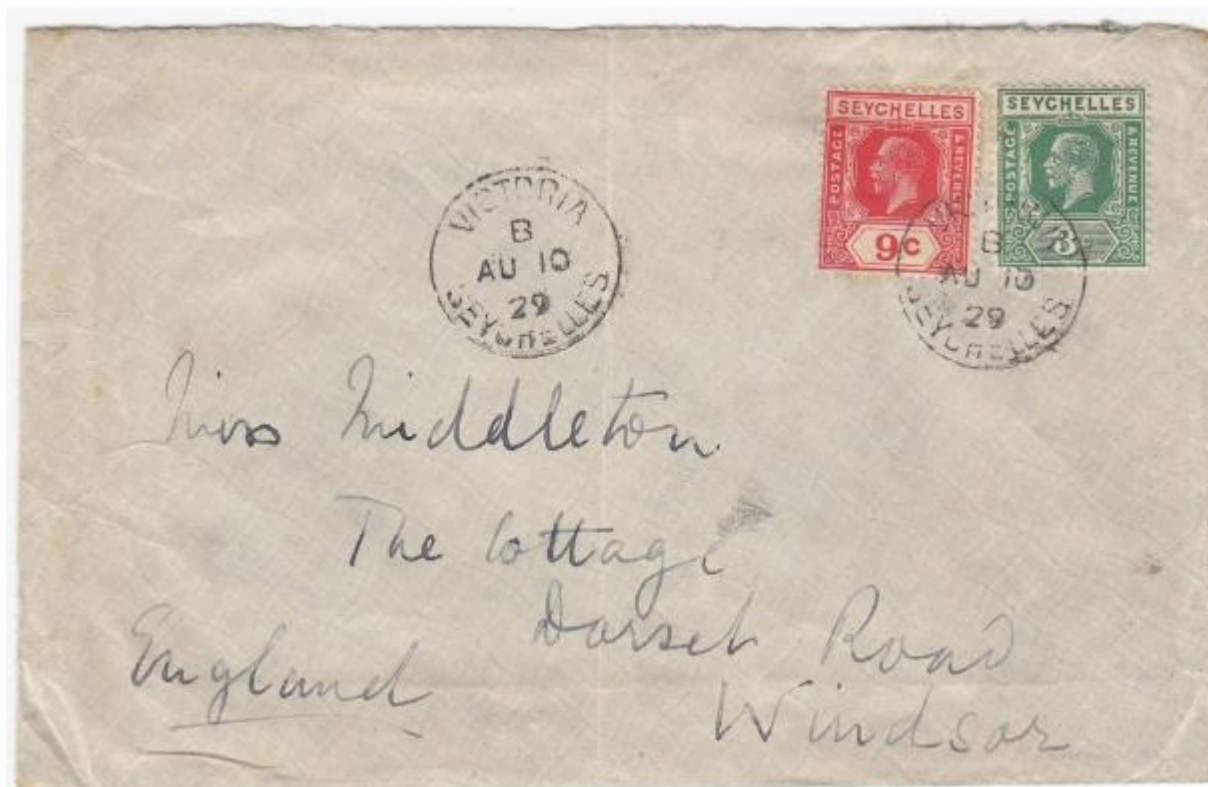 SEYCHELLES
POSTAGE & REVENUE
9c
SEYCHELLES
POSTAGE & REVENUE
3
VICTORIA
B
AU 10
29
SEYCHELLES
B
AU 10
29
SEYCHELLES
Miss Middleton
The Cottage
Dorset Road
Windsor
England